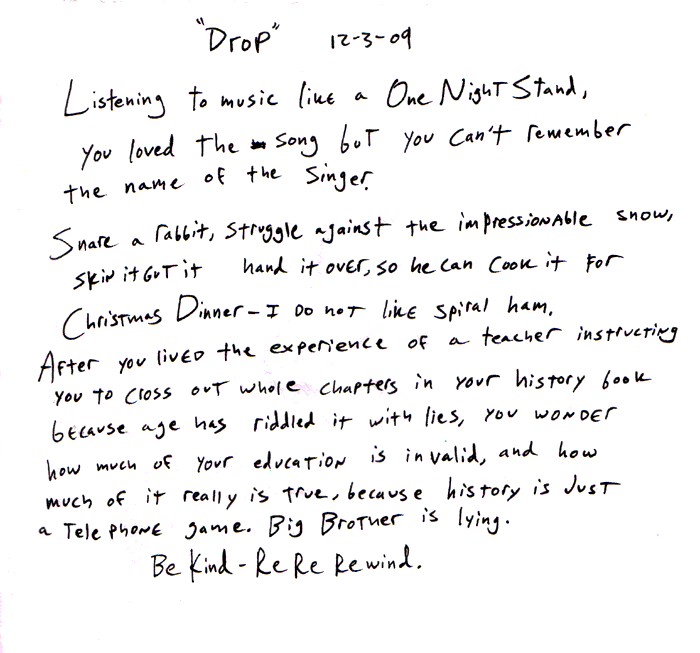 "Drop" 12-3-09
Listening to music like a One Night Stand,
you loved the song but you can't remember
the name of the singer.
Snare a rabbit, struggle against the impressionable snow,
skin it gut it hand it over, so he can cook it for
Christmas Dinner - I do not like spiral ham.
After you lived the experience of a teacher instructing
you to cross out whole chapters in your history book
because age has riddled it with lies, you wonder
how much of your education is invalid, and how
much of it really is true, because history is just
a Telephone game. Big Brother is lying.
Be Kind - Re Re Rewind.